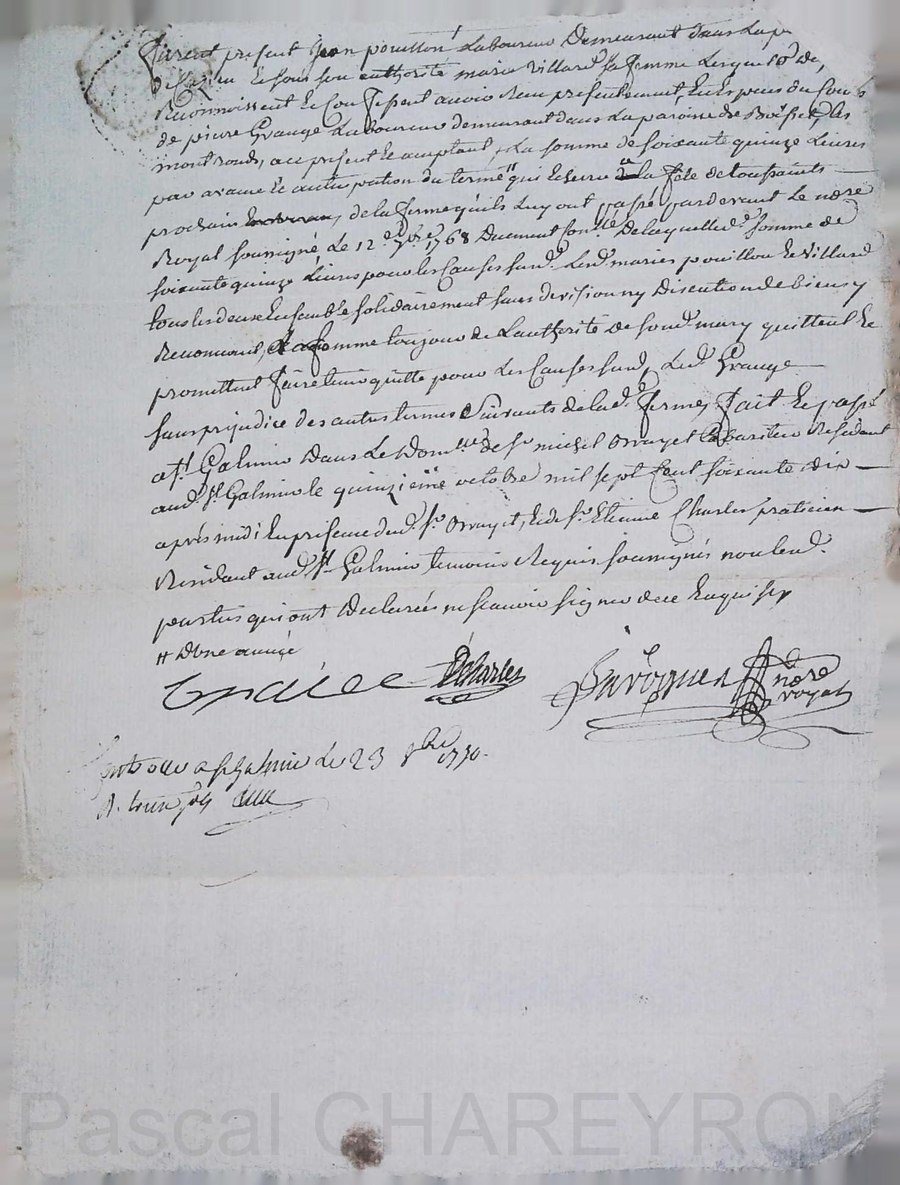 furent present Jean pouillon Laboureur Demeurant dans La
de et sous son authorité marie villard sa femme Lesquels de
Reconnoissent et Confessent avoir Reçu presentement, En Especes du Cours
de pierre Grange Laboureur demeurant dans La paroisse de Boisset les
mont rond, au present et acceptant, La somme de soixante quinze Livres
par avance et anticipation du terme # qui Echerra a la fête de toussaints
prochain de la ferme qu'ils Luy ont passé pardevant Le nore
Royal soussigné Le 12e 1768 Duement conllé De laquelle de somme de
soixante quinze Livres pour les Causes susd. Lesd. mariés pouillon et villard
tous les deux Ensemble solidairement sans division ny Discution de biens y
Renoncant, et La femme toujour de L'authorité de sond. mary quittent et
promettent faire tenir quitte pour Les Causes susd. Led. Grange
sans préjudice des autres termes Suivants de lad. ferme, fait et passé
a St. Galmier Dans Le Domlle de Sr michel Resident
aud. St. Galmier le quinzieme octobre mil sept Cent soixante dix
après midi En presence dud. Sr. et de Sr. Etienne Charles praticien
Residant aud. St. Galmier temoins Requis soussignés non lesd.
parties qui ont Declarées ne scavoir signer de ce Enquises
# D'une année
Charles nore royal
a st galmier Le 23 8bre 1770.